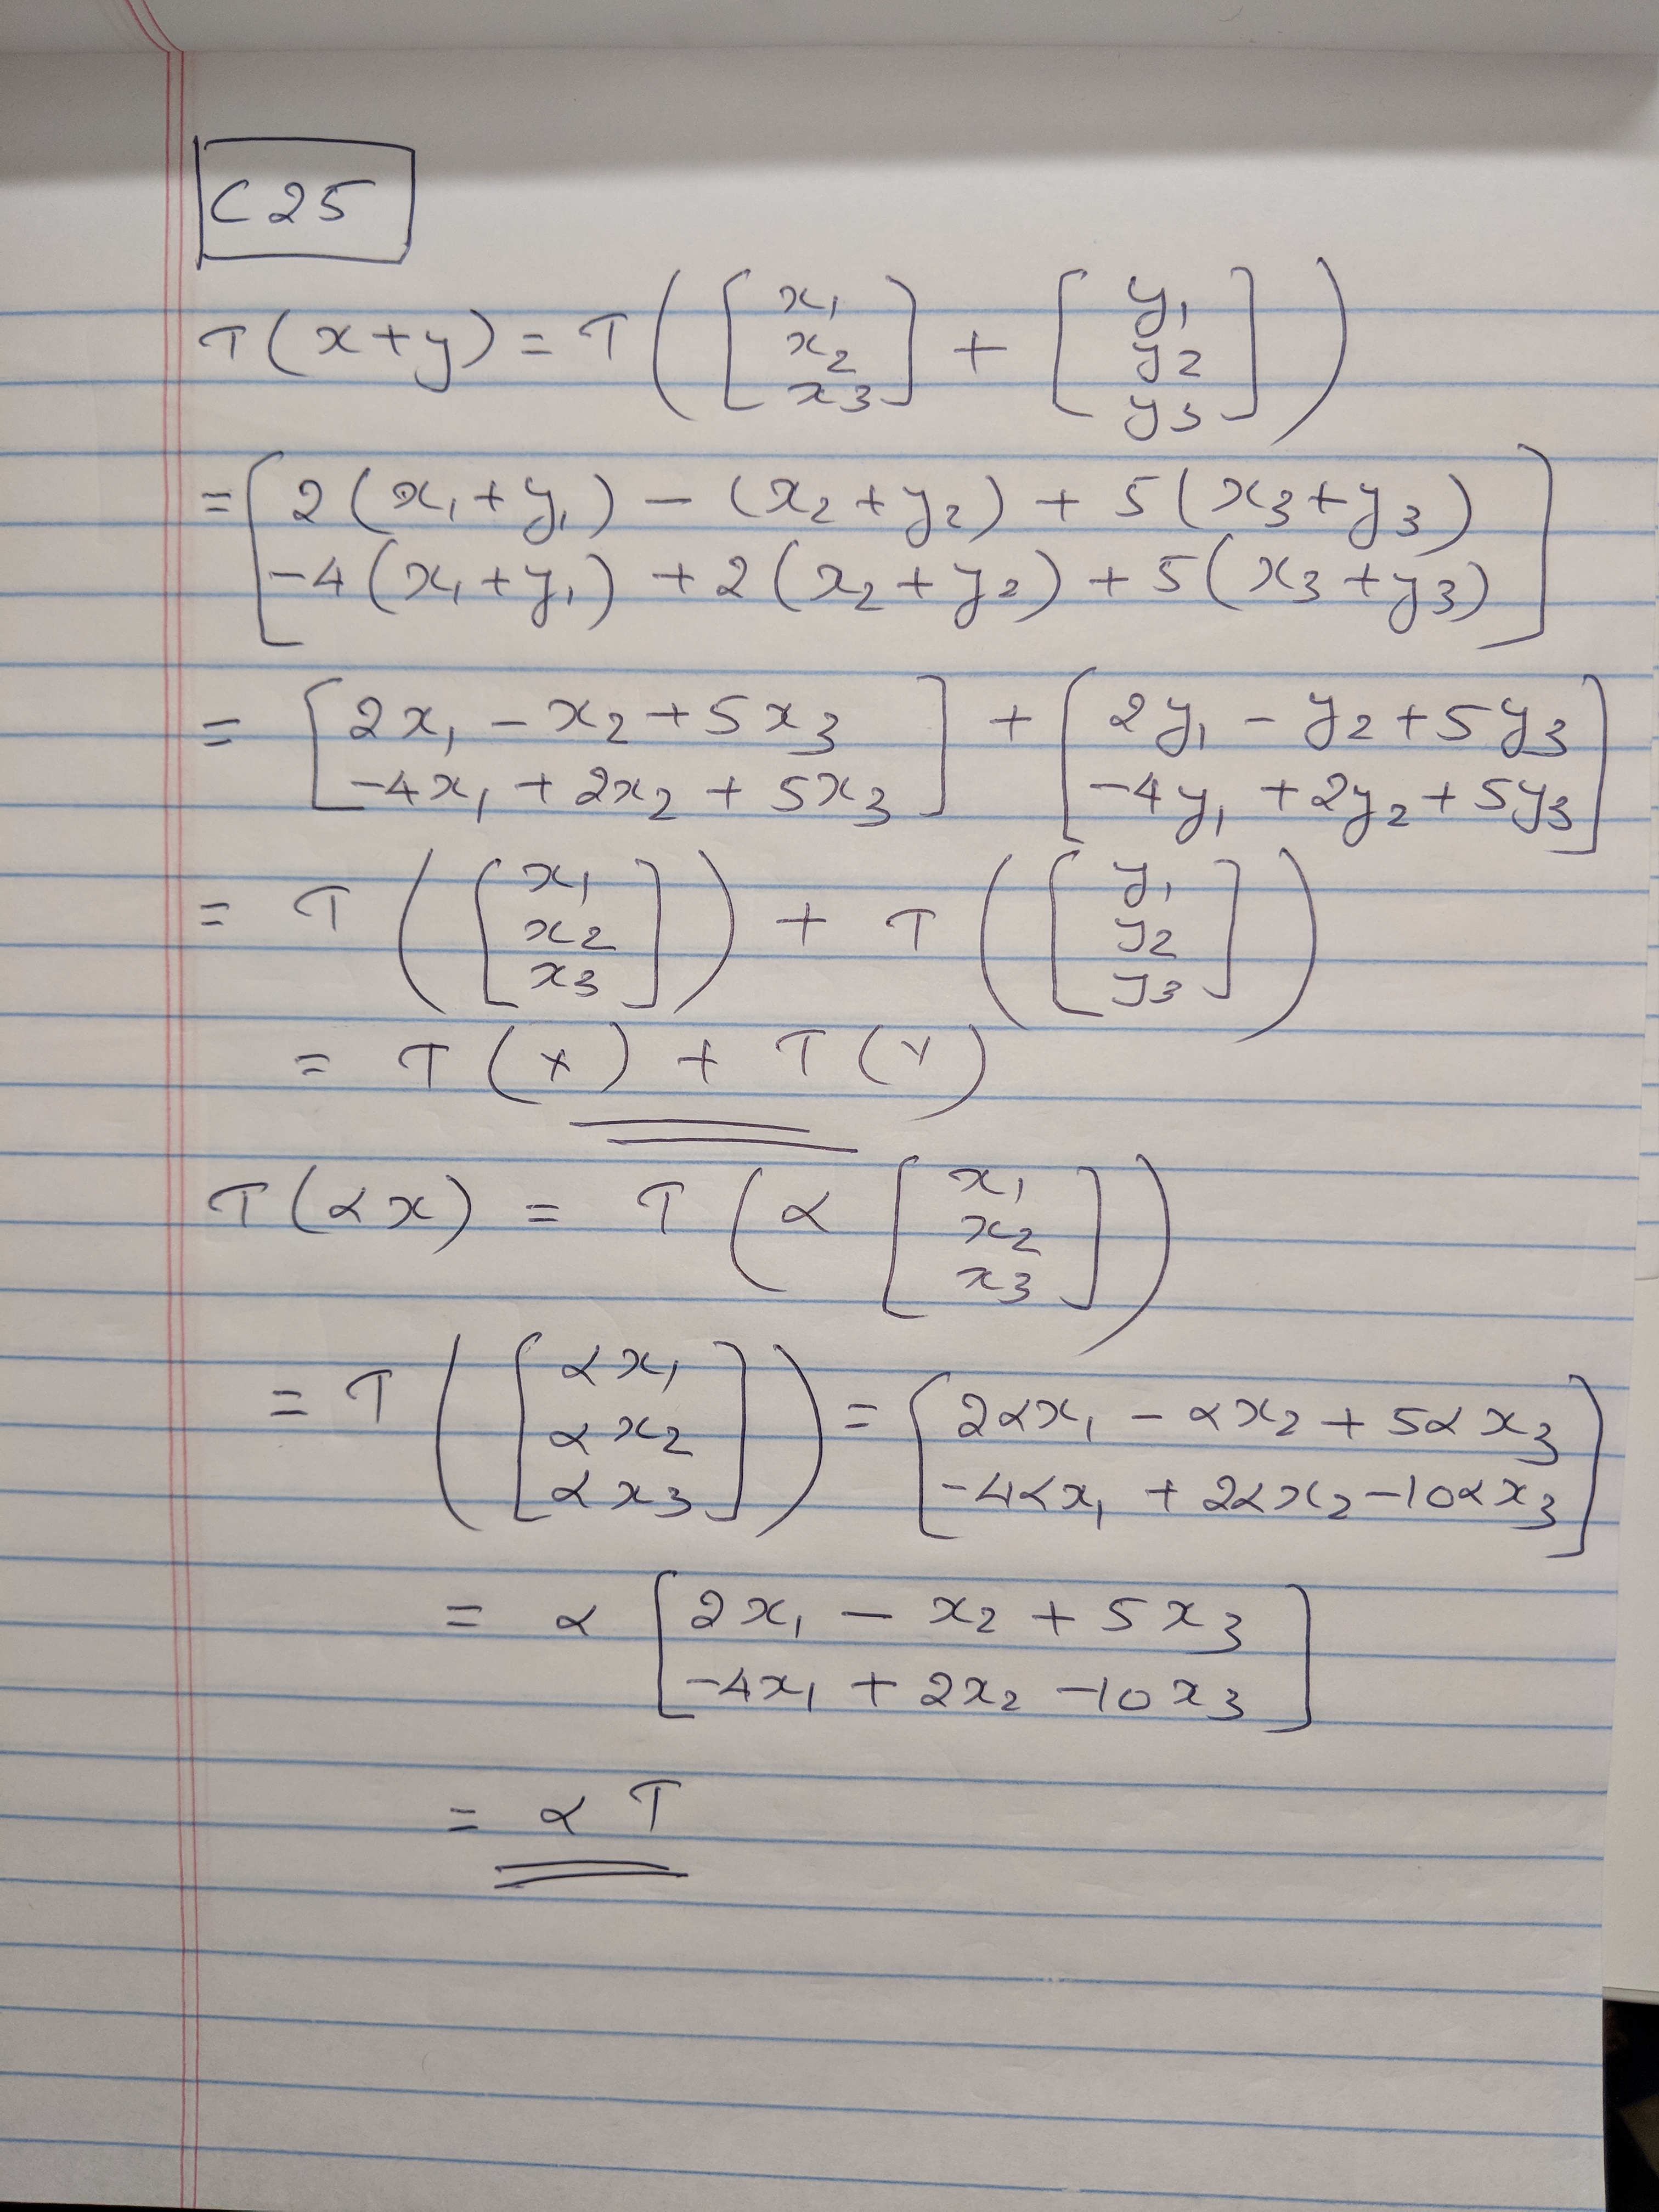 C25
T(x+y) = T([x₁ x₂ x₃] + [y₁ y₂ y₃])
= [2(x₁+y₁) − (x₂+y₂) + 5(x₃+y₃)
−4(x₁+y₁) + 2(x₂+y₂) + 5(x₃+y₃)]
= [2x₁ − x₂ + 5x₃ −4x₁ + 2x₂ + 5x₃] + [2y₁ − y₂ + 5y₃ −4y₁ + 2y₂ + 5y₃]
= T([x₁ x₂ x₃]) + T([y₁ y₂ y₃])
= T(x) + T(y)
T(αx) = T(α[x₁ x₂ x₃])
= T([αx₁ αx₂ αx₃]) = [2αx₁ − αx₂ + 5αx₃ −4αx₁ + 2αx₂ −10αx₃]
= α[2x₁ − x₂ + 5x₃
−4x₁ + 2x₂ −10x₃]
= αT